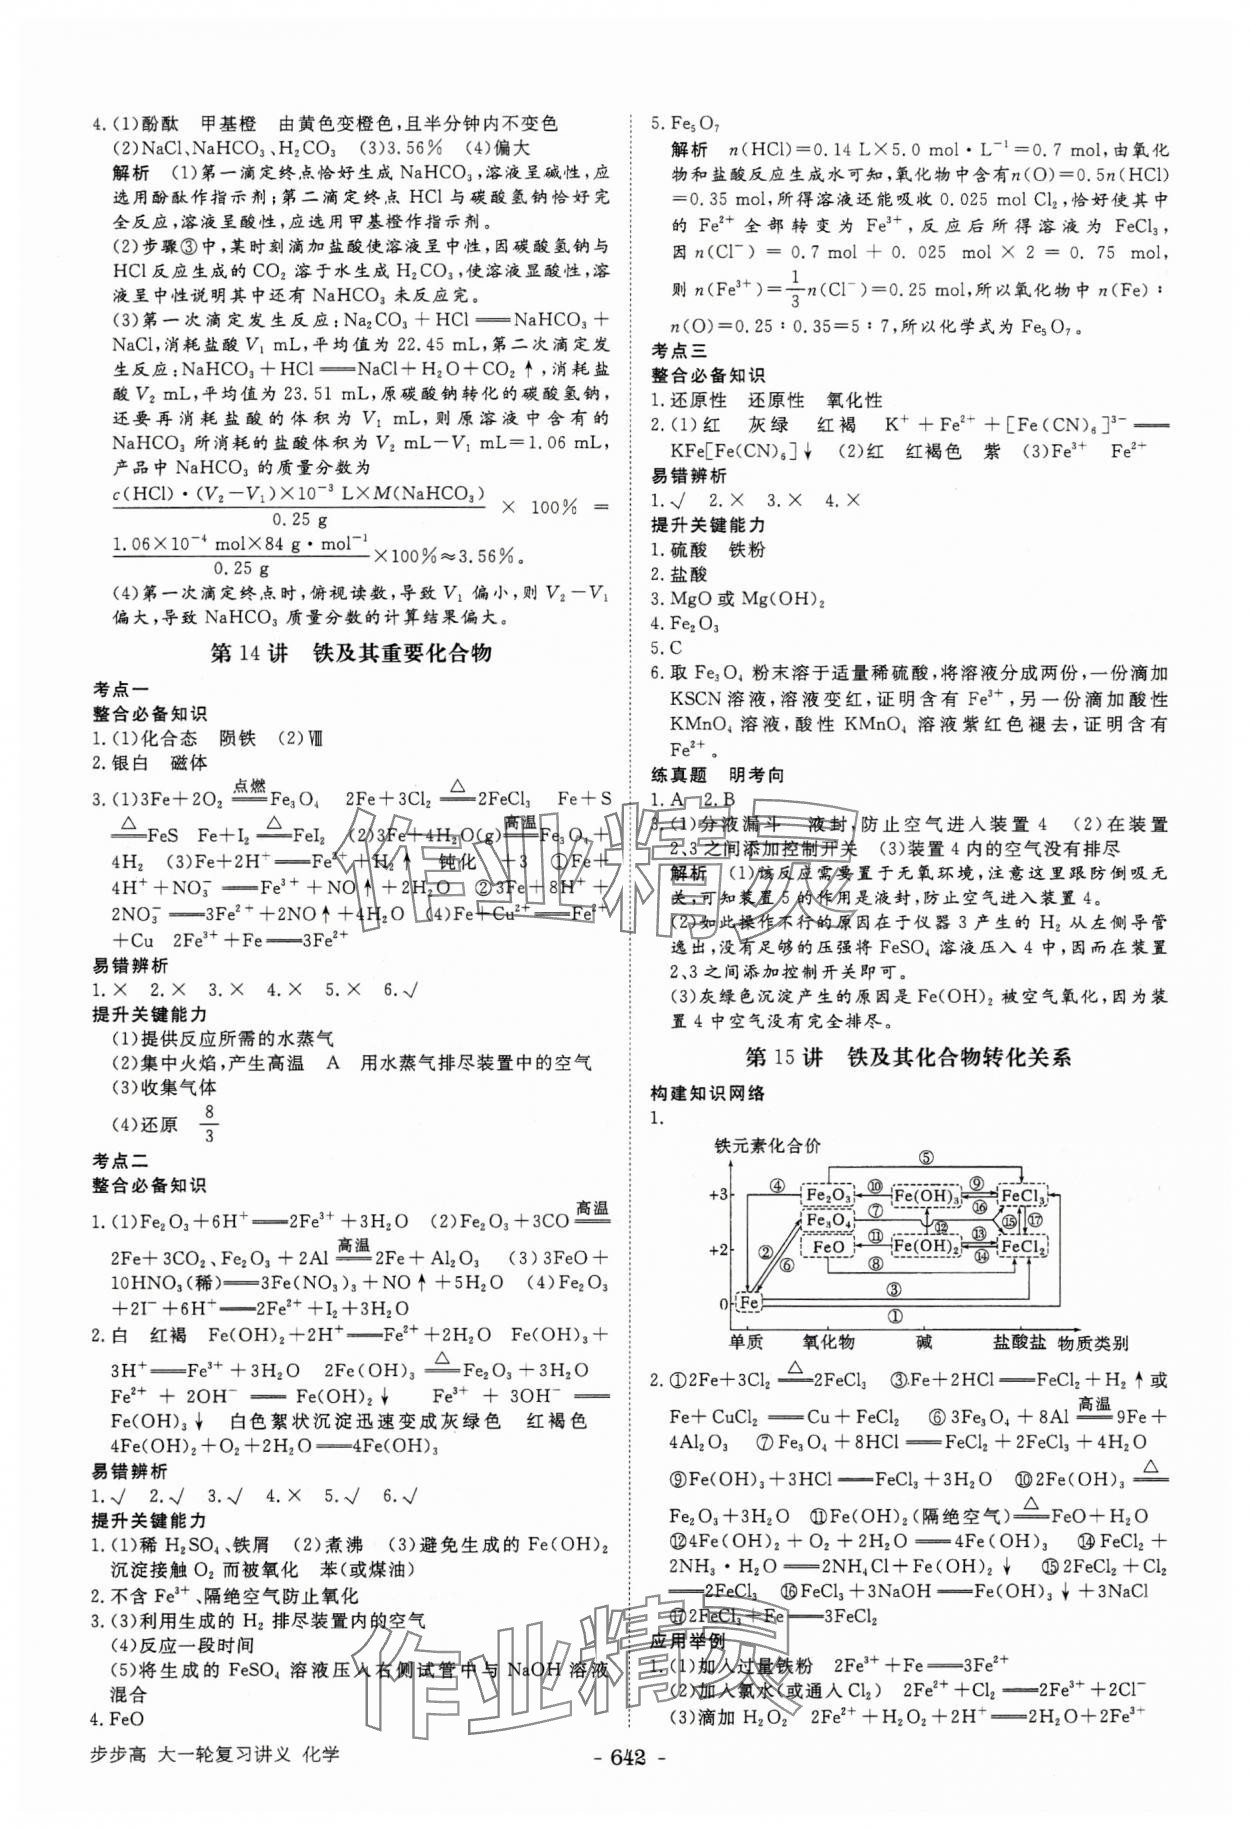 4. (1)酚酞　甲基橙　由黄色变橙色,且半分钟内不变色
(2)NaCl、NaHCO₃、H₂CO₃　(3)3.56%　(4)偏大
解析　(1)第一滴定终点恰好生成 NaHCO₃,溶液呈碱性,应
选用酚酞作指示剂;第二滴定终点 HCl 与碳酸氢钠恰好完
全反应,溶液呈酸性,应选用甲基橙作指示剂。
(2)步骤③中,某时刻滴加盐酸使溶液呈中性,因碳酸氢钠与
HCl 反应生成的 CO₂ 溶于水生成 H₂CO₃,使溶液显酸性,溶
液呈中性说明其中还有 NaHCO₃ 未反应完。
(3)第一次滴定发生反应:Na₂CO₃+HCl══NaHCO₃+
NaCl,消耗盐酸 V₁ mL,平均值为 22.45 mL,第二次滴定发
生反应:NaHCO₃+HCl══NaCl+H₂O+CO₂↑,消耗盐
酸 V₂ mL,平均值为 23.51 mL,原碳酸钠转化的碳酸氢钠,
还要再消耗盐酸的体积为 V₁ mL,则原溶液中含有的
NaHCO₃ 所消耗的盐酸体积为 V₂ mL−V₁ mL=1.06 mL,
产品中 NaHCO₃ 的质量分数为
c(HCl)·(V₂−V₁)×10⁻³ L×M(NaHCO₃)
0.25 g
×100%=
1.06×10⁻⁴ mol×84 g·mol⁻¹
0.25 g
×100%≈3.56%。
(4)第一次滴定终点时,俯视读数,导致 V₁ 偏小,则 V₂−V₁
偏大,导致 NaHCO₃ 质量分数的计算结果偏大。
第 14 讲　铁及其重要化合物
考点一
整合必备知识
1. (1)化合态　陨铁　(2)Ⅷ
2. 银白　磁体
3. (1)3Fe+2O₂ 点燃══ Fe₃O₄　2Fe+3Cl₂ △══ 2FeCl₃　Fe+S
△══ FeS　Fe+I₂ △══ FeI₂　(2)3Fe+4H₂O(g) 高温══ Fe₃O₄+
4H₂　(3)Fe+2H⁺══Fe²⁺+H₂↑　钝化　+3　①Fe+
4H⁺+NO₃⁻══Fe³⁺+NO↑+2H₂O　②3Fe+8H⁺+
2NO₃⁻══3Fe²⁺+2NO↑+4H₂O　(4)Fe+Cu²⁺══Fe²⁺
+Cu　2Fe³⁺+Fe══3Fe²⁺
易错辨析
1. ×　2. ×　3. ×　4. ×　5. ×　6. √
提升关键能力
(1)提供反应所需的水蒸气
(2)集中火焰,产生高温　A　用水蒸气排尽装置中的空气
(3)收集气体
(4)还原　8/3
考点二
整合必备知识
1. (1)Fe₂O₃+6H⁺══2Fe³⁺+3H₂O　(2)Fe₂O₃+3CO 高温══
2Fe+3CO₂、Fe₂O₃+2Al 高温══ 2Fe+Al₂O₃　(3)3FeO+
10HNO₃(稀)══3Fe(NO₃)₃+NO↑+5H₂O　(4)Fe₂O₃
+2I⁻+6H⁺══2Fe²⁺+I₂+3H₂O
2. 白　红褐　Fe(OH)₂+2H⁺══Fe²⁺+2H₂O　Fe(OH)₃+
3H⁺══Fe³⁺+3H₂O　2Fe(OH)₃ △══ Fe₂O₃+3H₂O
Fe²⁺+2OH⁻══Fe(OH)₂↓　Fe³⁺+3OH⁻══
Fe(OH)₃↓　白色絮状沉淀迅速变成灰绿色　红褐色
4Fe(OH)₂+O₂+2H₂O══4Fe(OH)₃
易错辨析
1. √　2. √　3. √　4. ×　5. √　6. √
提升关键能力
1. (1)稀 H₂SO₄、铁屑　(2)煮沸　(3)避免生成的 Fe(OH)₂
沉淀接触 O₂ 而被氧化　苯(或煤油)
2. 不含 Fe³⁺、隔绝空气防止氧化
3. (3)利用生成的 H₂ 排尽装置内的空气
(4)反应一段时间
(5)将生成的 FeSO₄ 溶液压入右侧试管中与 NaOH 溶液
混合
4. FeO
5. Fe₅O₇
解析　n(HCl)=0.14 L×5.0 mol·L⁻¹=0.7 mol,由氧化
物和盐酸反应生成水可知,氧化物中含有n(O)=0.5n(HCl)
=0.35 mol,所得溶液还能吸收 0.025 mol Cl₂,恰好使其中
的 Fe²⁺ 全部转变为 Fe³⁺,反应后所得溶液为 FeCl₃,
因 n(Cl⁻)=0.7 mol+0.025 mol×2=0.75 mol,
则 n(Fe³⁺)=1/3 n(Cl⁻)=0.25 mol,所以氧化物中 n(Fe)∶
n(O)=0.25∶0.35=5∶7,所以化学式为 Fe₅O₇。
考点三
整合必备知识
1. 还原性　还原性　氧化性
2. (1)红　灰绿　红褐　K⁺+Fe²⁺+[Fe(CN)₆]³⁻══
KFe[Fe(CN)₆]↓　(2)红　红褐色　紫　(3)Fe³⁺　Fe²⁺
易错辨析
1. √　2. ×　3. ×　4. ×
提升关键能力
1. 硫酸　铁粉
2. 盐酸
3. MgO 或 Mg(OH)₂
4. Fe₂O₃
5. C
6. 取 Fe₃O₄ 粉末溶于适量稀硫酸,将溶液分成两份,一份滴加
KSCN 溶液,溶液变红,证明含有 Fe³⁺,另一份滴加酸性
KMnO₄ 溶液,酸性 KMnO₄ 溶液紫红色褪去,证明含有
Fe²⁺。
练真题　明考向
1. A　2. B
3. (1)分液漏斗　液封,防止空气进入装置 4　(2)在装置
2、3 之间添加控制开关　(3)装置 4 内的空气没有排尽
解析　(1)该反应需要置于无氧环境,注意这里跟防倒吸无
关,可知装置 5 的作用是液封,防止空气进入装置 4。
(2)如此操作不行的原因在于仪器 3 产生的 H₂ 从左侧导管
逸出,没有足够的压强将 FeSO₄ 溶液压入 4 中,因而在装置
2、3 之间添加控制开关即可。
(3)灰绿色沉淀产生的原因是 Fe(OH)₂ 被空气氧化,因为装
置 4 中空气没有完全排尽。
第 15 讲　铁及其化合物转化关系
构建知识网络
1.
铁元素化合价
⑤
+3　④　Fe₂O₃　⑩　Fe(OH)₃　⑨　FeCl₃
⑯
Fe₃O₄　⑦　⑫　⑮　⑰
+2　②　FeO　⑪　Fe(OH)₂　⑬　FeCl₂
⑥　⑧　⑭
③
0　Fe
①
单质　氧化物　碱　盐酸盐　物质类别
2. ①2Fe+3Cl₂ △══ 2FeCl₃　③Fe+2HCl══FeCl₂+H₂↑或
Fe+CuCl₂══Cu+FeCl₂　⑥3Fe₃O₄+8Al 高温══ 9Fe+
4Al₂O₃　⑦Fe₃O₄+8HCl══FeCl₂+2FeCl₃+4H₂O
⑨Fe(OH)₃+3HCl══FeCl₃+3H₂O　⑩2Fe(OH)₃ △══
Fe₂O₃+3H₂O　⑪Fe(OH)₂(隔绝空气) △══ FeO+H₂O
⑫4Fe(OH)₂+O₂+2H₂O══4Fe(OH)₃　⑭FeCl₂+
2NH₃·H₂O══2NH₄Cl+Fe(OH)₂↓　⑮2FeCl₂+Cl₂
══2FeCl₃　⑯FeCl₃+3NaOH══Fe(OH)₃↓+3NaCl
⑰2FeCl₃+Fe══3FeCl₂
应用举例
1. (1)加入过量铁粉　2Fe³⁺+Fe══3Fe²⁺
(2)加入氯水(或通入 Cl₂)　2Fe²⁺+Cl₂══2Fe³⁺+2Cl⁻
(3)滴加 H₂O₂　2Fe²⁺+H₂O₂+2H⁺══2Fe³⁺+2H₂O
步步高　大一轮复习讲义　化学
- 642 -
作业精灵
作业精灵